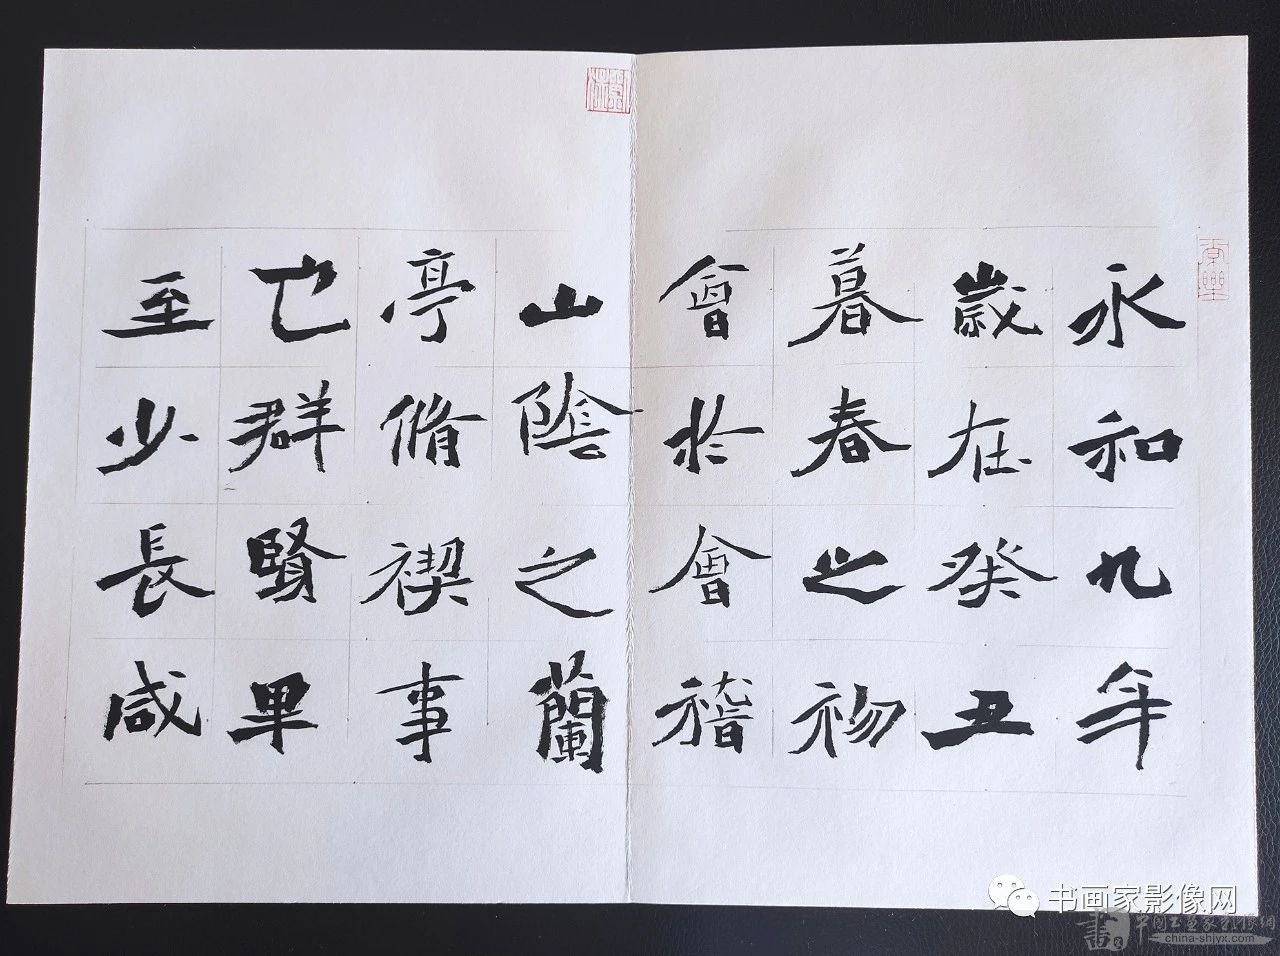 永和九年
歲在癸丑
暮春之初
會於會稽
山陰之蘭
亭脩禊事
也群賢畢
至少長咸
书画家影像网
中國书画家影像網
china-shjyx.com